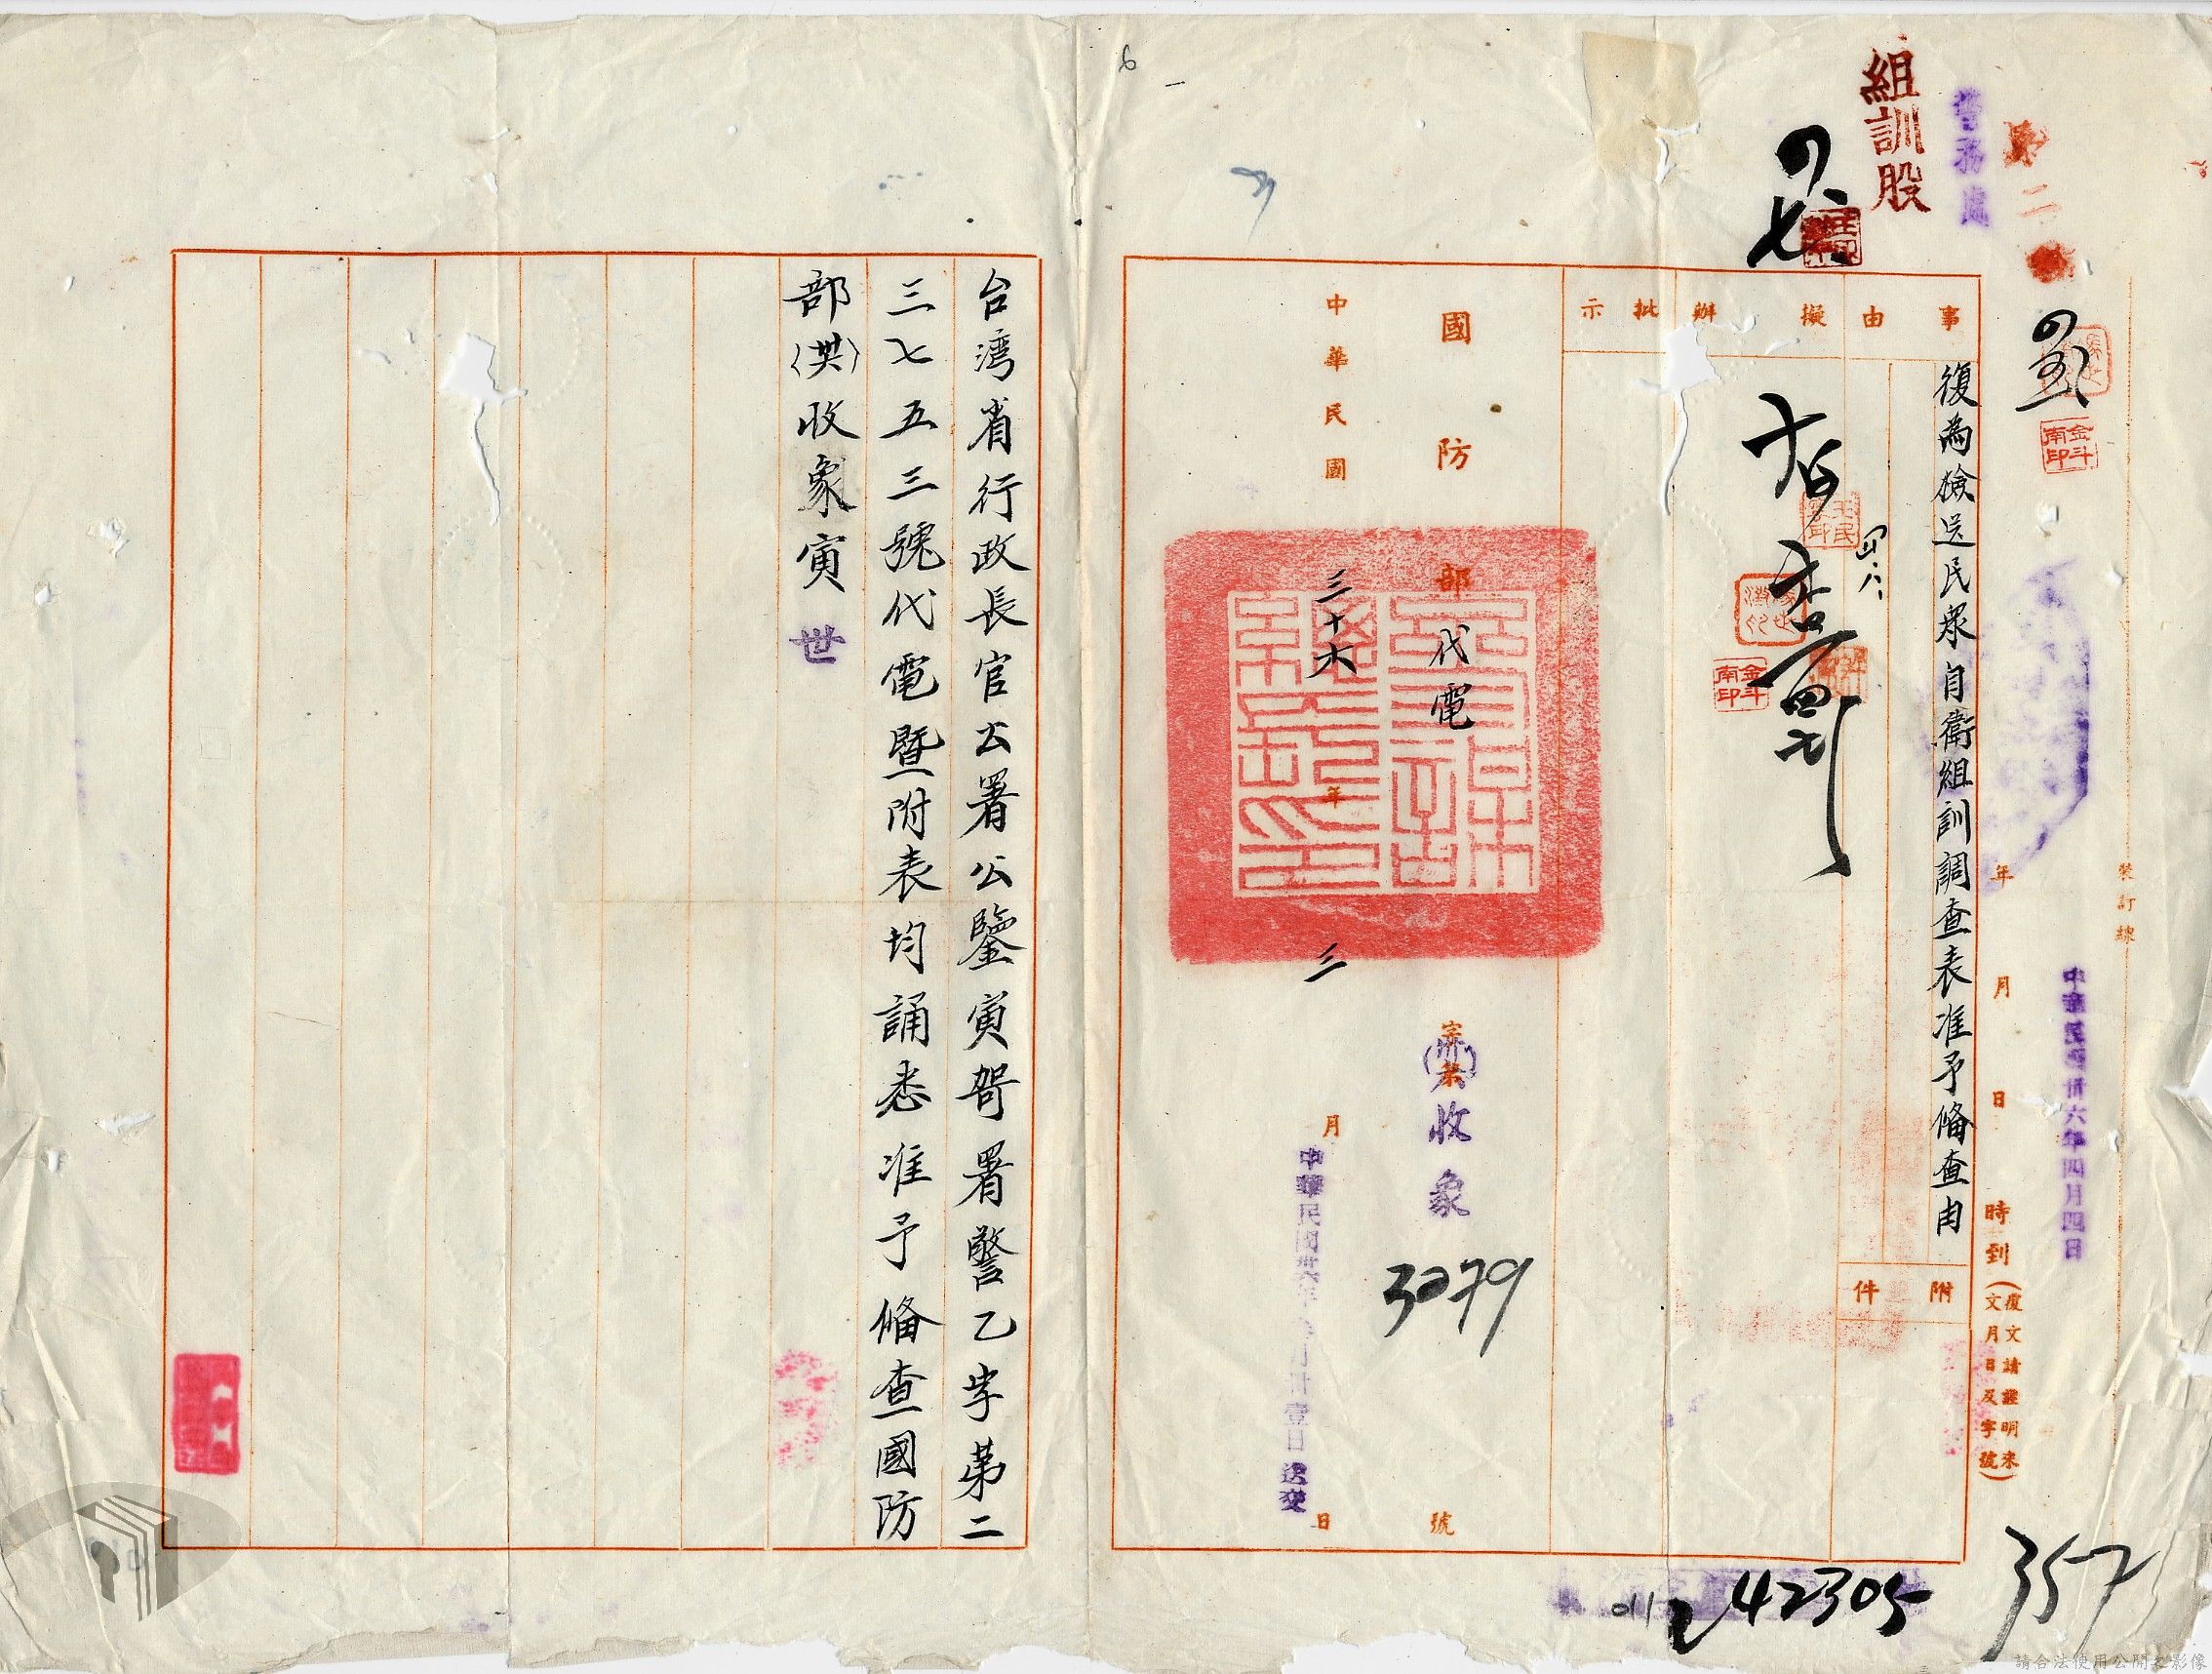 組訓股
警務處
裝訂線
中華民國卅六年四月四日
年 月 日 時到
(覆文請註明來
文月日及字號)
事由
復為檢送民眾自衛組訓調查表准予備查由
附件
擬辦
四.六.
批示
國防部代電
收象
3079
號
中華民國三十六年三月 日
中華民國卅六年 月卅壹日送發
金斗南印
金斗南印
357
42305
台湾省行政長官公署公鑒寅 署警乙字第二
三七五三號代電暨附表均誦悉准予備查國防
部 收象寅世
請合法使用公開之影像